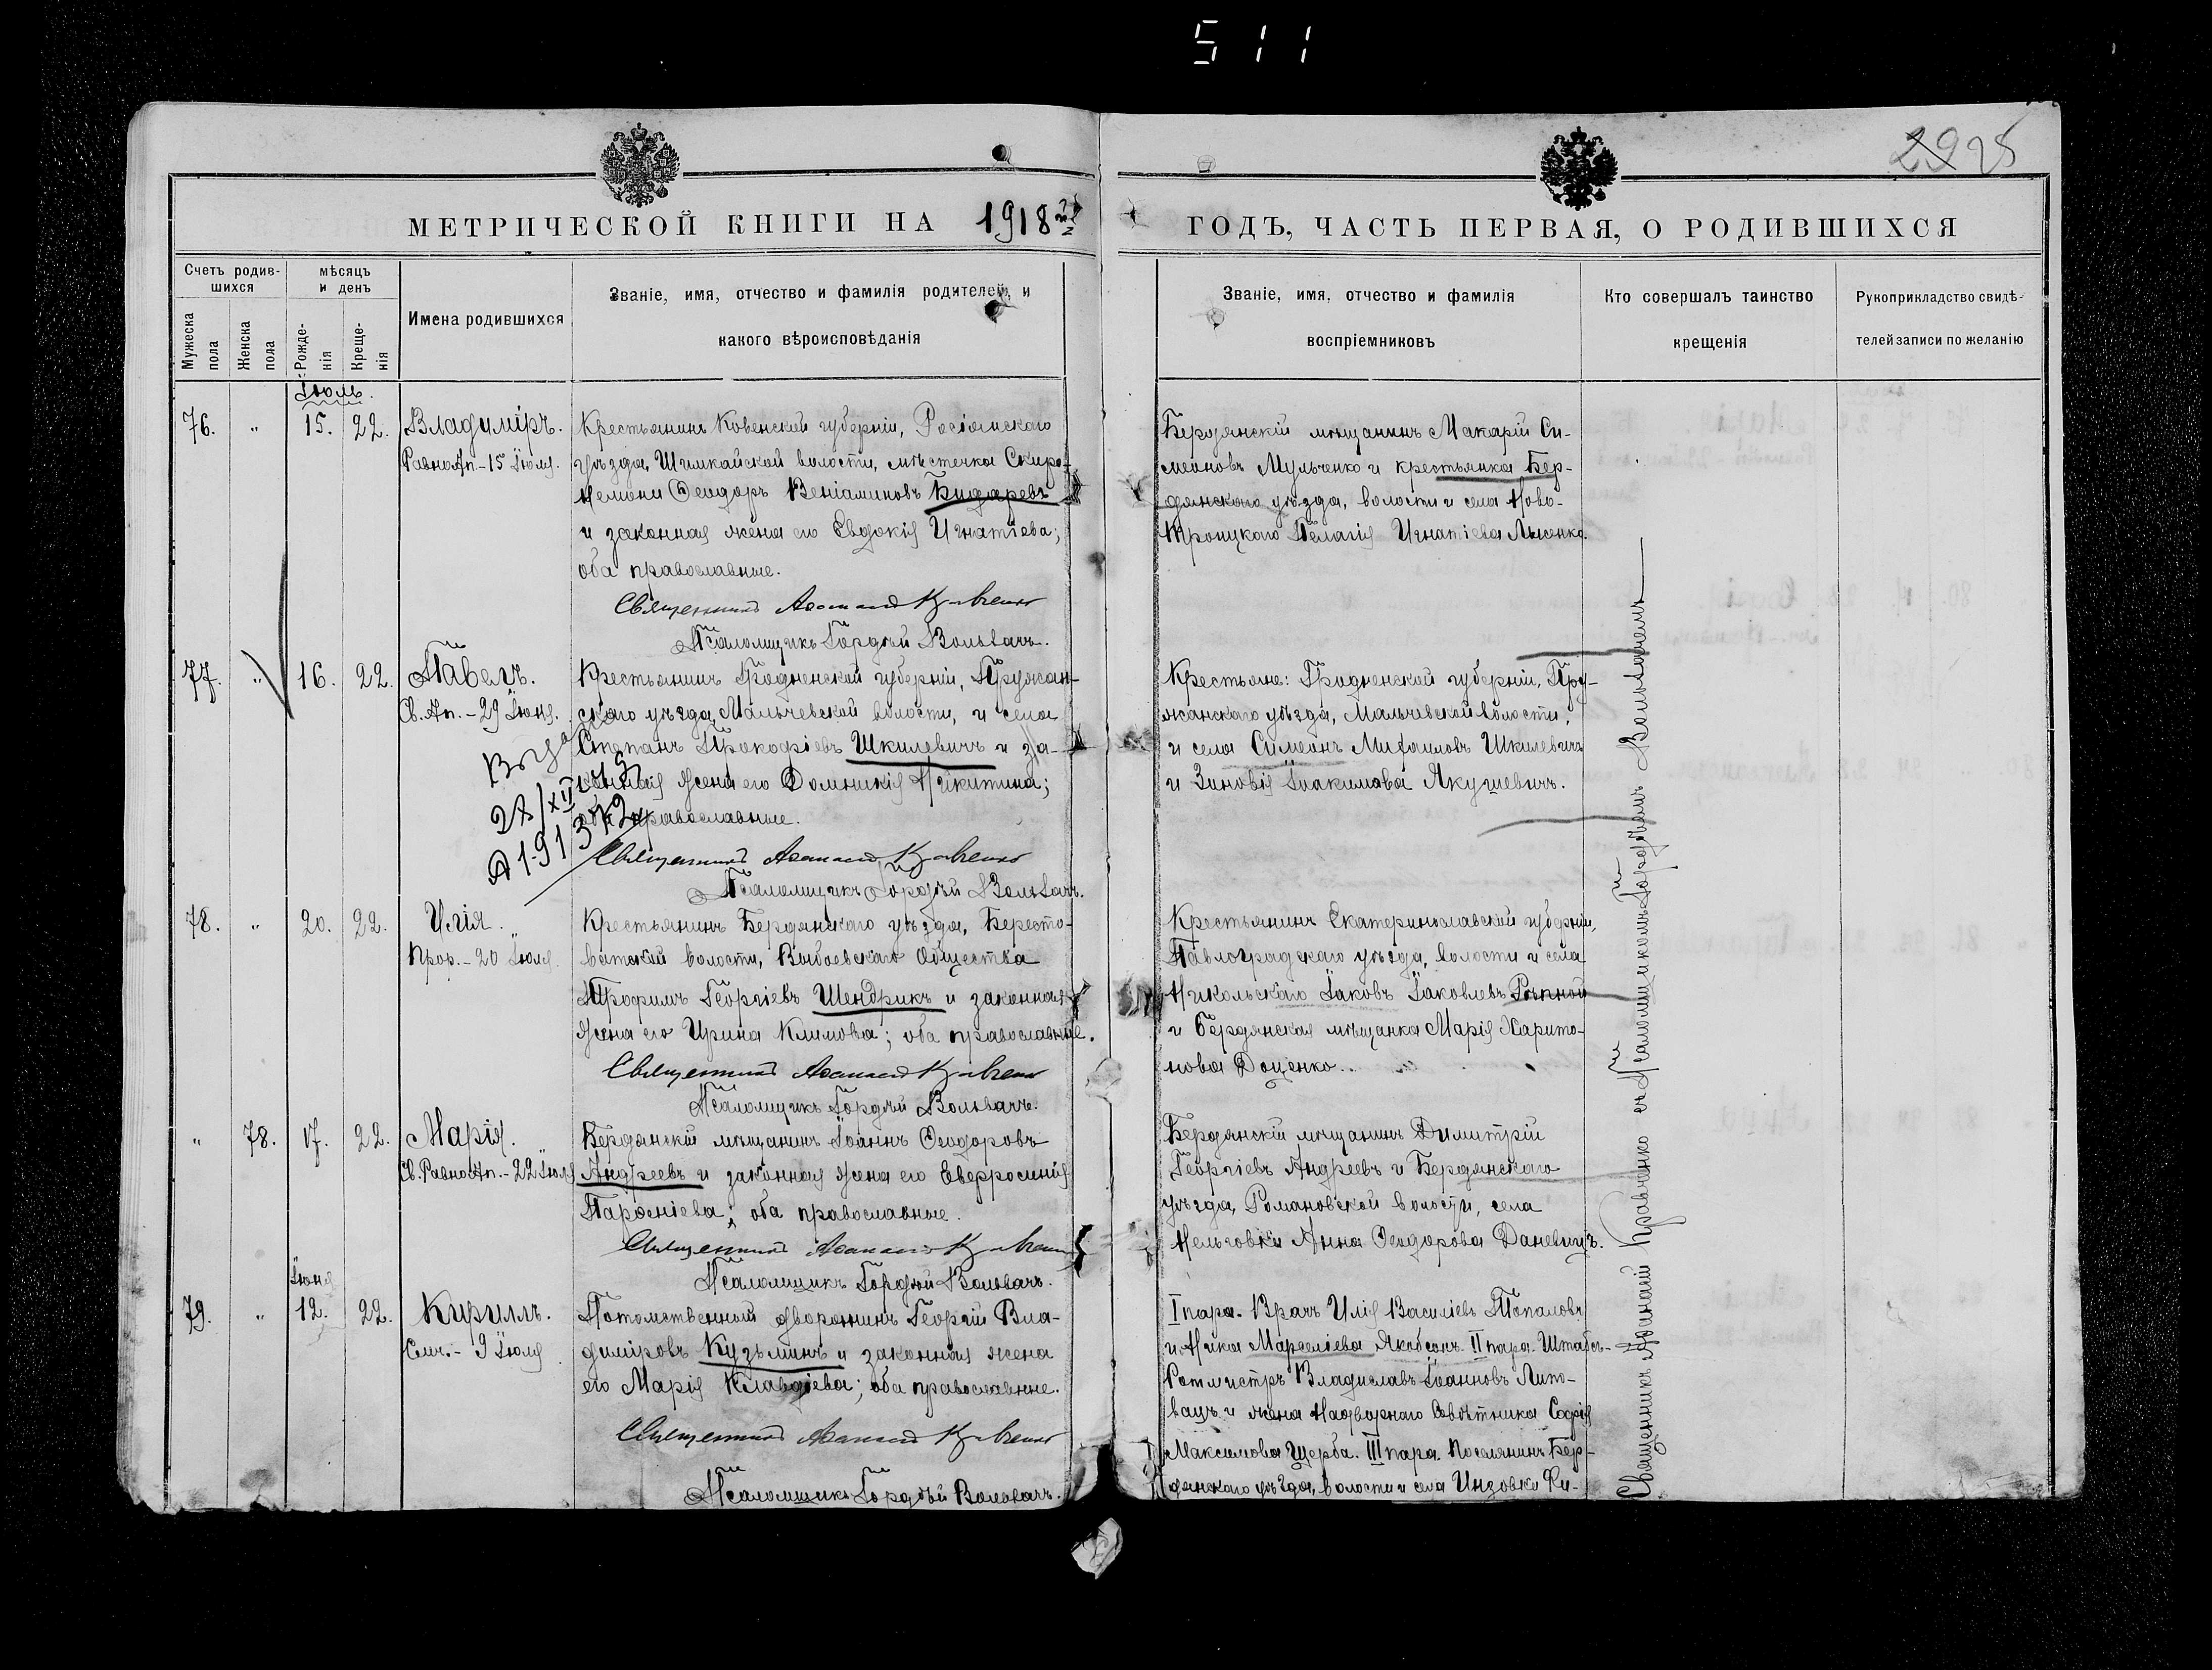 511
2925
МЕТРИЧЕСКОЙ КНИГИ НА 1918 й
Счетъ родив-
шихся
мѣсяцъ
и день
Мужеска
пола
Женска
пола
Рожде-
нія
Креще-
нія
Имена родившихся
Званіе, имя, отчество и фамилія родителей, и
какого вѣроисповѣданія
Іюль.
76. " 15. 22. Владиміръ.
РавноАп. - 15 Іюля.
Крестьянинъ Ковенской губерніи, Росіянскаго
уѣзда, Шимкайской волости, мѣстечка Скиро-
немони Ѳеодоръ Веніаминовъ
и законная жена его Евдокія Игнатіева;
оба православные.
Священникъ Аѳанасій Кравченко
Псаломщикъ Гордѣй Вольвачъ.
77. " 16. 22. Павелъ.
Св. Ап. - 29 Іюня.
Крестьянинъ Гродненской губерніи, Пружан-
скаго уѣзда, Мальчевской волости, и села
Степанъ Прокофіевъ Шкилевичъ и за-
конная жена его Домникія Никитина;
оба православные.
27/XII
Священникъ Аѳанасій Кравченко
Псаломщикъ Гордѣй Вольвачъ.
78. " 20. 22. Илія.
Прор. - 20 Іюля.
Крестьянинъ Бердянскаго уѣзда, Баресто-
ватской волости, Общества
Трофимъ Георгіевъ Шендрикъ и законная
жена его Ирина Климова; оба православные.
Священникъ Аѳанасій Кравченко
Псаломщикъ Гордѣй Вольвачъ.
" 78. 17. 22. Марія.
Св. РавноАп. - 22 Іюля
Бердянскій мѣщанинъ Іоаннъ Ѳеодоровъ
Андреевъ и законная жена его Евфросинія
Парѳеніева; оба православные.
Священникъ Аѳанасій Кравченко
Псаломщикъ Гордѣй Вольвачъ.
Іюня
79. " 12. 22. Кириллъ.
9 Іюля
Потомственный дворянинъ Георгій Вла-
диміровъ Кузьминъ и законная жена
его Марія Клавдіева; оба православные.
Священникъ Аѳанасій Кравченко
Псаломщикъ Гордѣй Вольвачъ.
ГОДЪ, ЧАСТЬ ПЕРВАЯ, О РОДИВШИХСЯ
Званіе, имя, отчество и фамилія
воспріемниковъ
Кто совершалъ таинство
крещенія
Рукоприкладство свидѣ-
телей записи по желанію
Бердянскій мѣщанинъ Макарій Си-
меоновъ Мульченко и крестьянка Бер-
дянскаго уѣзда, волости и села Ново-
Троицкаго Пелагія Игнатіева Лысенко.
Крестьяне: Гродненской губерніи, Пру-
жанскаго уѣзда, Мальчевской волости,
и села Симеонъ Михаиловъ Шкилевичъ
и Зиновія Іоакимова Якушевичъ.
Крестьянинъ Екатеринославской губерніи,
Павлоградскаго уѣзда, волости и села
Никольскаго Іаковъ Іаковлевъ Рѣпной
и бердянская мѣщанка Марія Харито-
нова Доценко.
Бердянскій мѣщанинъ Димитрій
Георгіевъ Андреевъ и Бердянскаго
уѣзда, Романовской волости, села
Нельговки Анна Ѳеодорова Даневичъ.
I пара. Врачъ Илія Василіевъ Топаловъ
и Ника Якобсонъ. II пара. Штабсъ-
Ротмистръ Владиславъ Іоанновъ Липо-
вацъ и жена Надворнаго Совѣтника Софія
Максимова Щерба. III пара. Поселянинъ Бер-
дянскаго уѣзда, волости и села Инзовки Ки-
Священникъ Аѳанасій Кравченко съ Псаломщикомъ Гордѣемъ Вольвачемъ